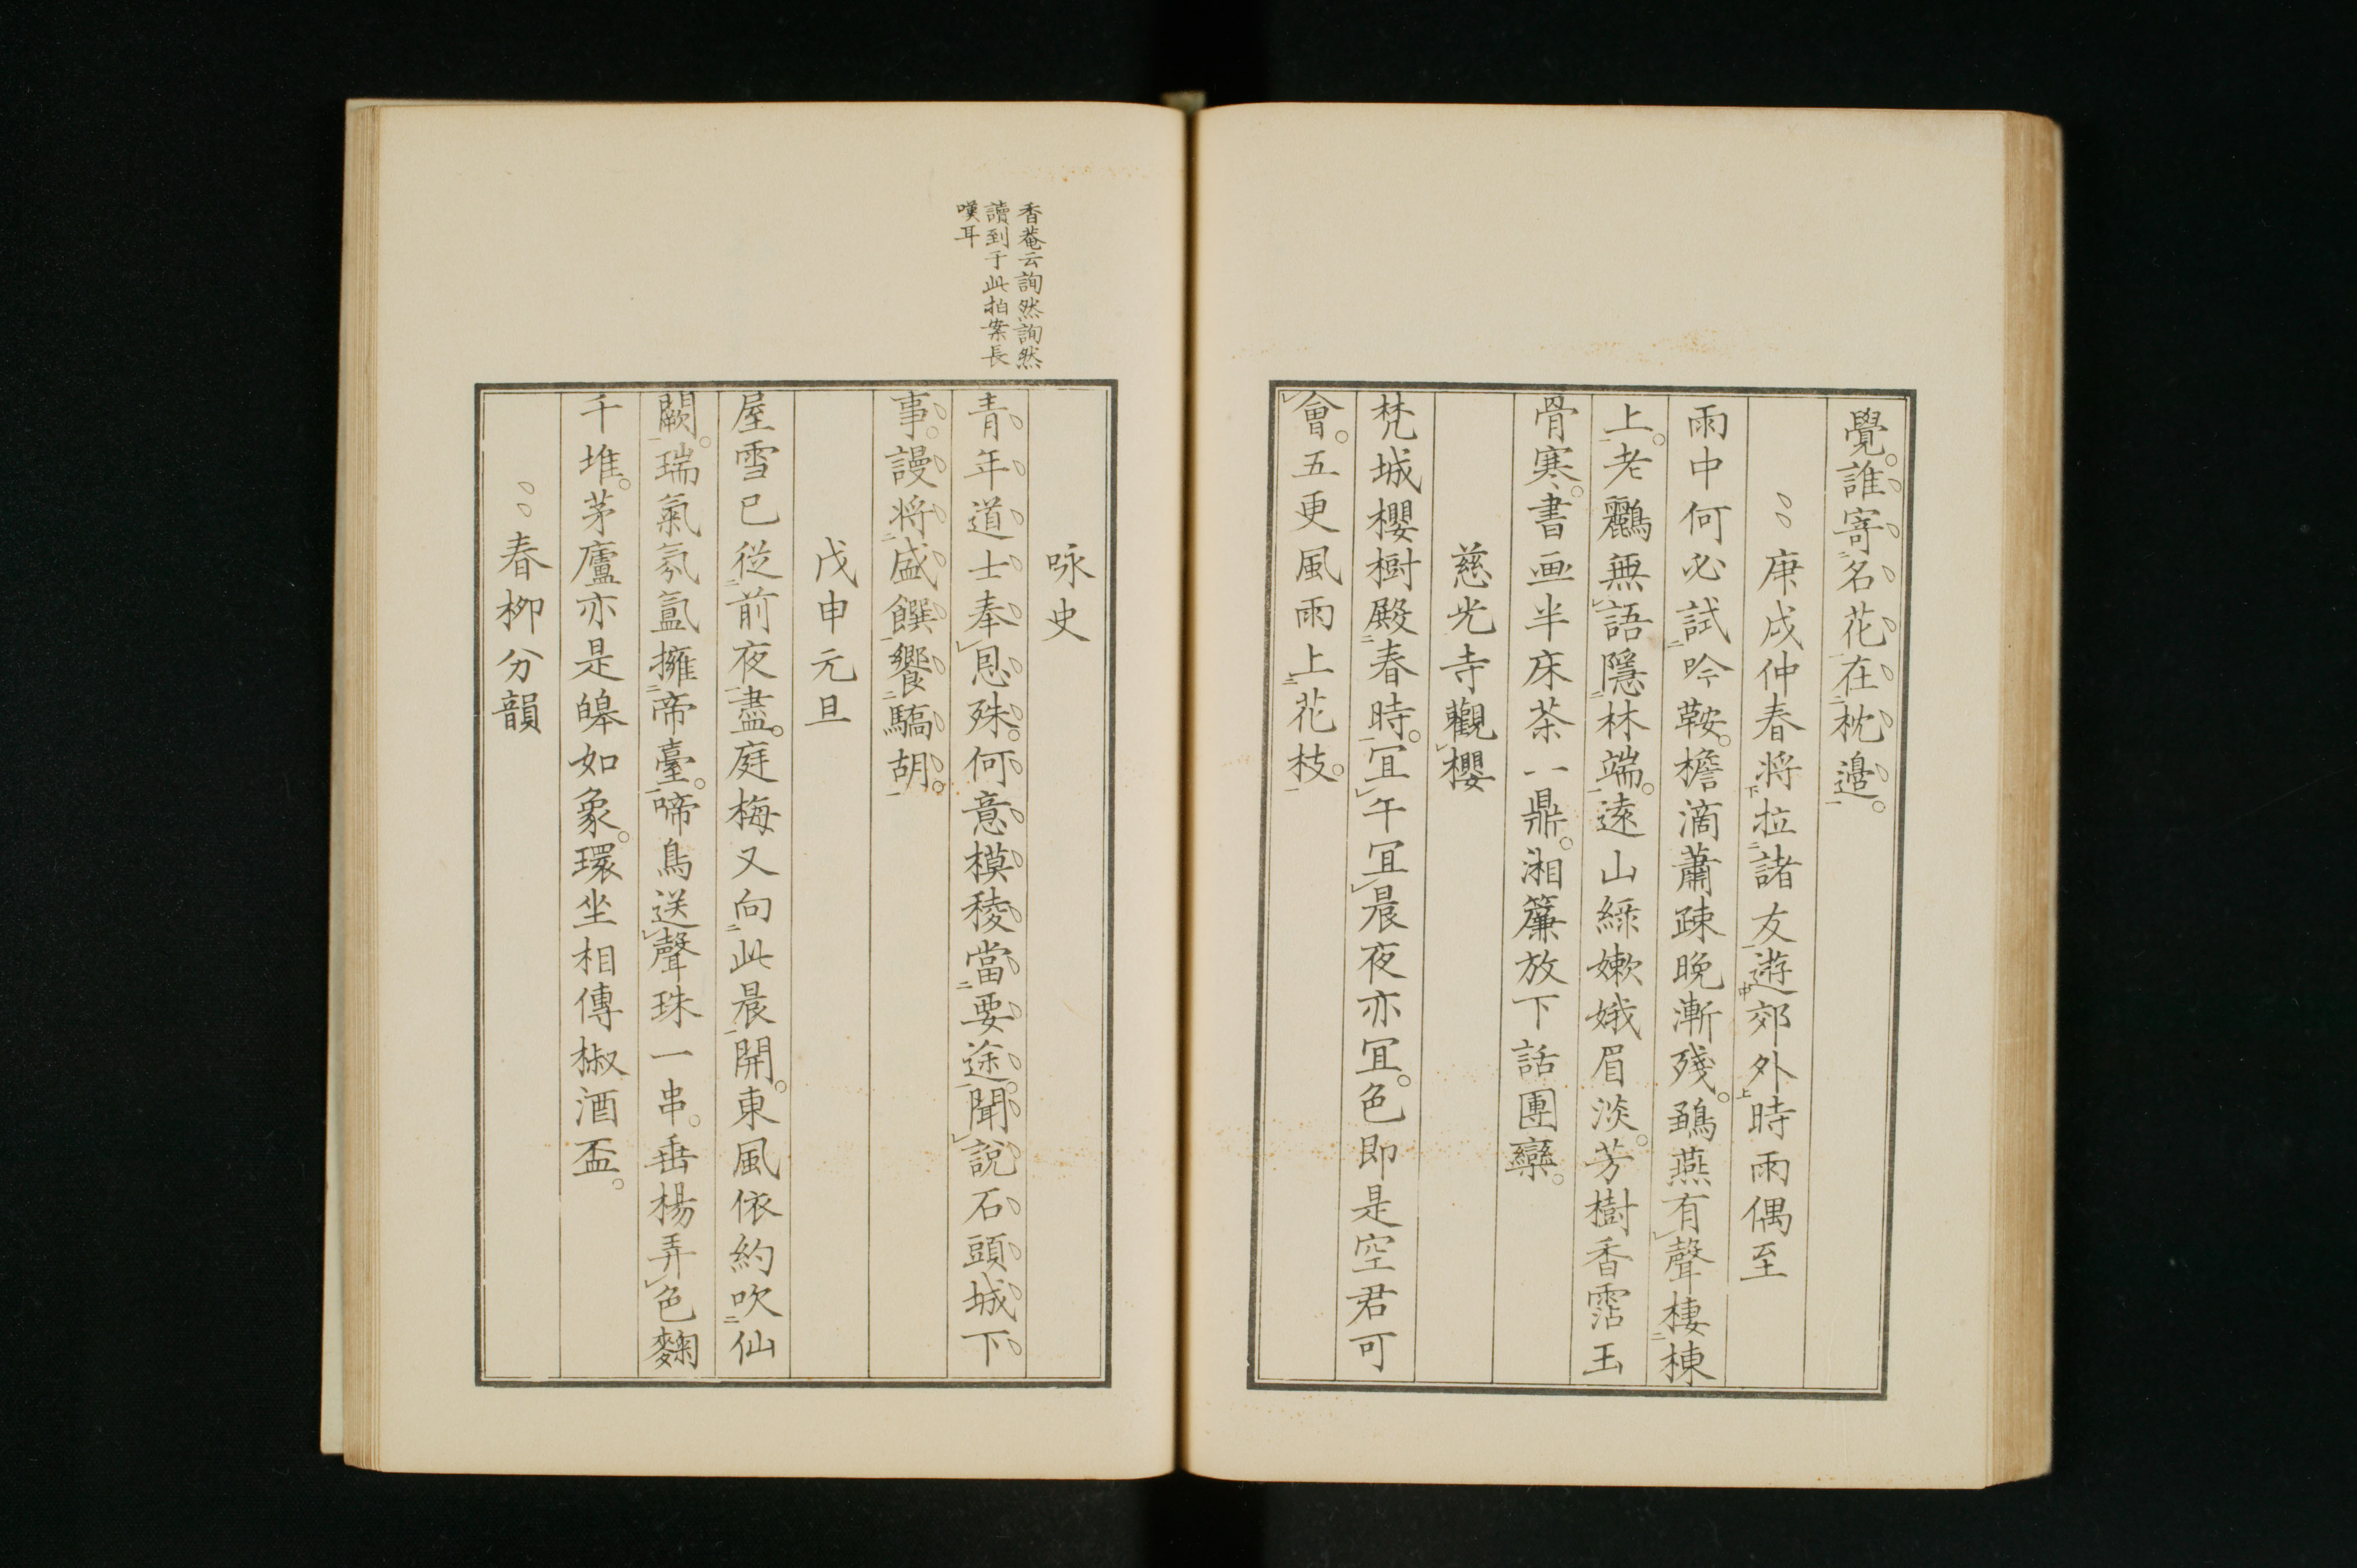 覺。誰寄名花在枕邊。
庚戌仲春将拉諸友遊郊外時雨偶至
雨中何必試吟鞍。檐滴蕭疎晚漸殘。鵶燕有聲棲棟
上。老鸝無語隱林端。遠山綠嫰娥眉淡。芳樹香霑玉
骨寒。書画半床茶一鼎。湘簾放下話團欒。
慈光寺觀櫻
梵城櫻樹殿春時。宜午宜晨夜亦宜。色即是空君可
會。五更風雨上花枝。
香菴云詢然詢然
讀到于此拍案長
嘆耳
咏史
青年道士奉恩殊。何意模稜當要途。聞說石頭城下
事。謾将盛饌饗驕胡。
戊申元旦
屋雪已從前夜盡。庭梅又向此晨開。東風依約吹仙
闕。瑞氣氛氳擁帝臺。啼鳥送聲珠一串。垂楊弄色麴
千堆。茅廬亦是皞如象。環坐相傳椒酒盃。
春柳分韻